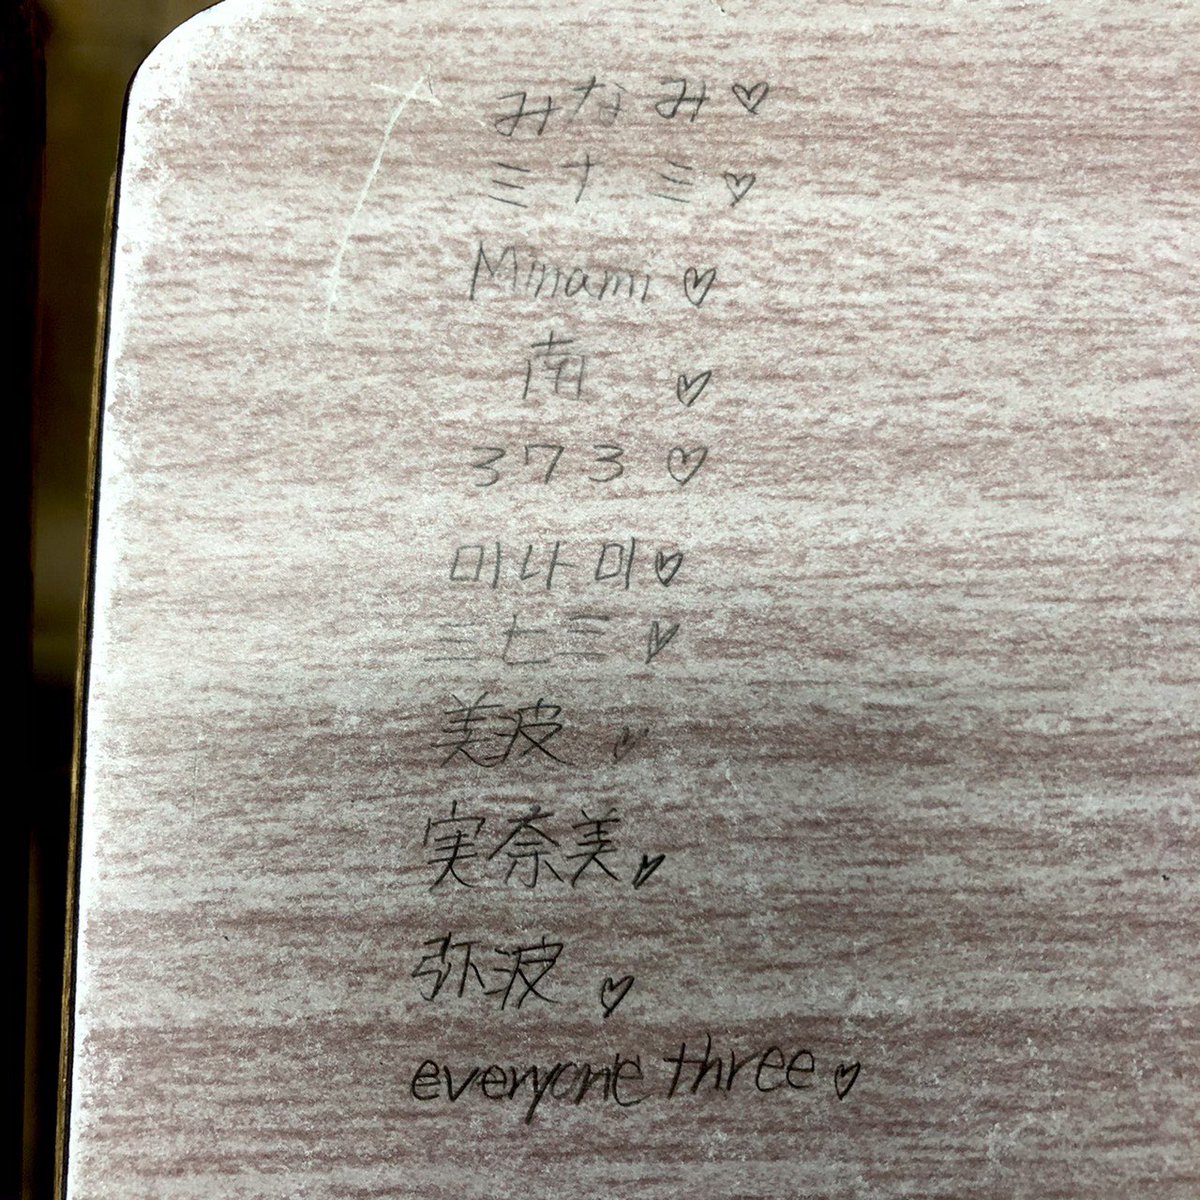 みなみ♡
ミナミ♡
Minami♡
南 ♡
373♡
미나미♡
三七三♡
美波♡
実奈美♡
弥波♡
everyone three♡